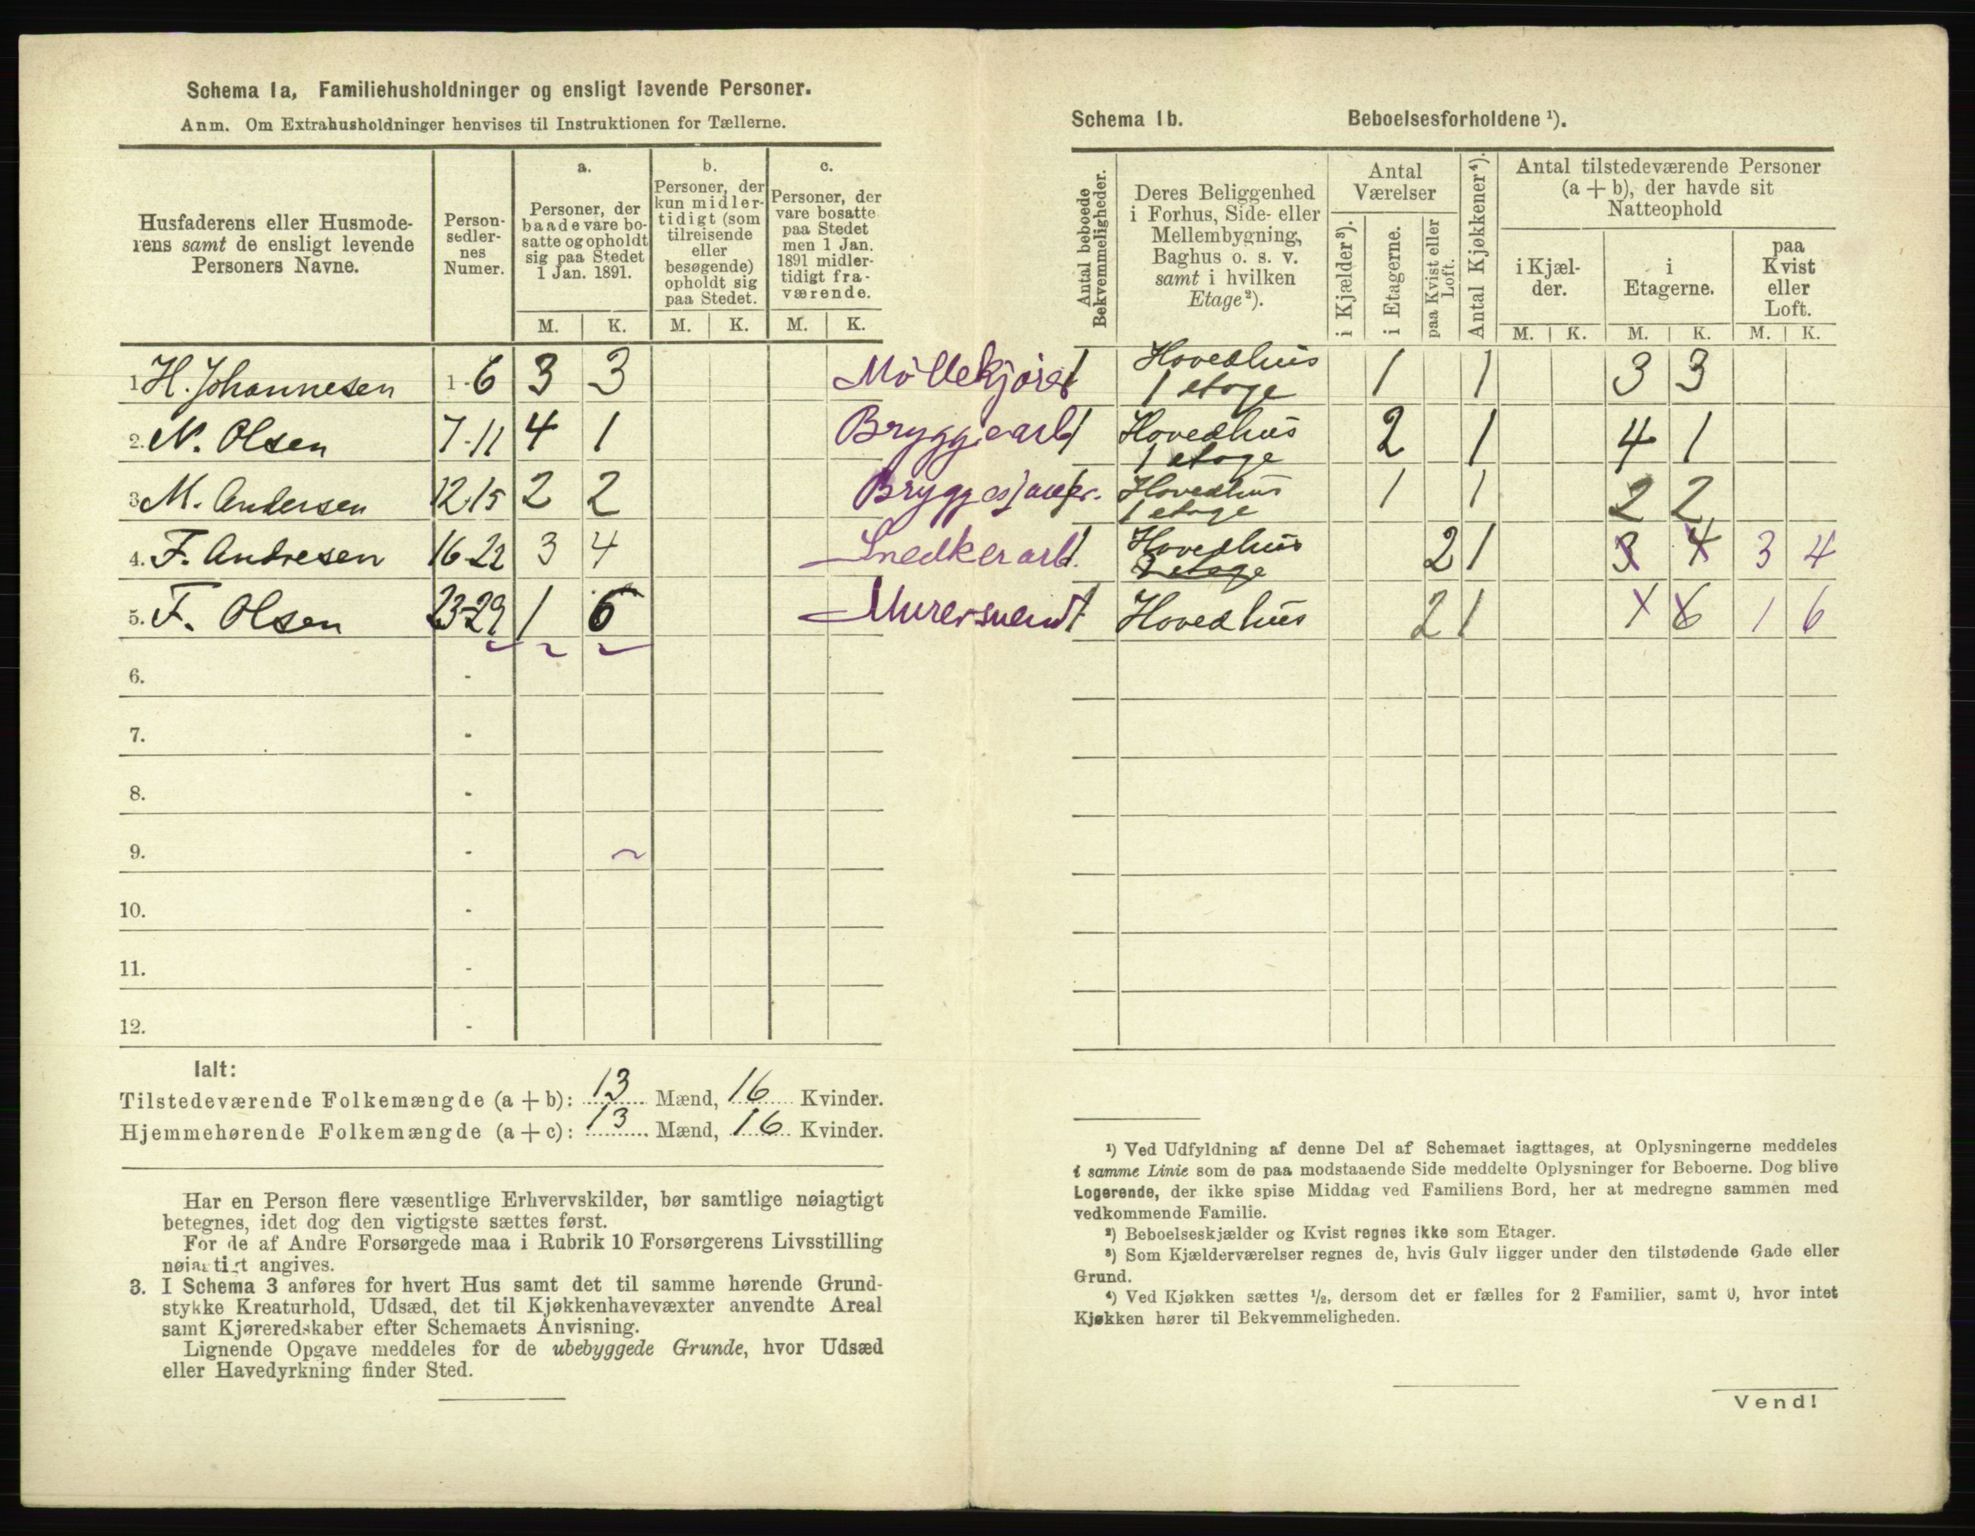 Schema 1a, Familiehusholdninger og ensligt levende Personer.
Anm. Om Extrahusholdninger henvises til Instruktionen for Tællerne.
Husfaderens eller Husmode-
rens samt de ensligt levende
Personers Navne.
Person-
sedler-
nes
Numer.
a.
Personer, der
baade vare bo-
satte og opholdt
sig paa Stedet
1 Jan. 1891.
b.
Personer, der
kun midler-
tidigt (som
tilreisende
eller
besøgende)
opholdt sig
paa Stedet.
c.
Personer, der
vare bosatte
paa Stedet
men 1 Jan.
1891 midler-
tidigt fra-
værende.
M. K. M. K. M. K.
1. H. Johannesen 1-6 3 3 Møllekjører
2. N. Olsen 7-11 4 1 Bryggearb
3. M. Andersen 12-15 2 2 Bryggesjauer.
4. F. Andresen 16-22 3 4 Snedkerarb.
5. F. Olsen 23-29 1 6 Murersvend
6. -
7. -
8. -
9. -
10. -
11. -
12. -
Ialt:
Tilstedeværende Folkemængde (a + b): 13 Mænd, 16 Kvinder.
Hjemmehørende Folkemængde (a + c): 13 Mænd, 16 Kvinder.
Har en Person flere væsentlige Erhvervskilder, bør samtlige nøiagtigt
betegnes, idet dog den vigtigste sættes først.
For de af Andre Forsørgede maa i Rubrik 10 Forsørgerens Livsstilling
nøiagtigt angives.
3. I Schema 3 anføres for hvert Hus samt det til samme hørende Grund-
stykke Kreaturhold, Udsæd, det til Kjøkkenhavevæxter anvendte Areal
samt Kjøreredskaber efter Schemaets Anvisning.
Lignende Opgave meddeles for de ubebyggede Grunde, hvor Udsæd
eller Havedyrkning finder Sted.
Schema 1b. Beboelsesforholdene ¹).
Antal beboede
Bekvemmeligheder.
Deres Beliggenhed
i Forhus, Side- eller
Mellembygning,
Baghus o. s. v.
samt i hvilken
Etage ²).
Antal
Værelser
i Kjælder ³).
i Etagerne.
paa Kvist eller
Loft.
Antal Kjøkkener ⁴).
Antal tilstedeværende Personer
(a + b), der havde sit
Natteophold
i Kjæl-
der.
i
Etagerne.
paa
Kvist
eller
Loft.
M. K. M. K. M. K.
1 Hovedhus
1 etage 1 1 3 3
1 Hovedhus
1 etage 2 1 4 1
1 Hovedhus
1 etage 1 1 2 2
1 Hovedhus
2 etage 2 1 3 4 3 4
1 Hovedhus 2 1 1 6 1 6
¹) Ved Udfyldning af denne Del af Schemaet iagttages, at Oplysningerne meddeles
i samme Linie som de paa modstaaende Side meddelte Oplysninger for Beboerne. Dog blive
Logerende, der ikke spise Middag ved Familiens Bord, her at medregne sammen med
vedkommende Familie.
²) Beboelseskjælder og Kvist regnes ikke som Etager.
³) Som Kjælderværelser regnes de, hvis Gulv ligger under den tilstødende Gade eller
Grund.
⁴) Ved Kjøkken sættes ½, dersom det er fælles for 2 Familier, samt 0, hvor intet
Kjøkken hører til Bekvemmeligheden.
Vend!